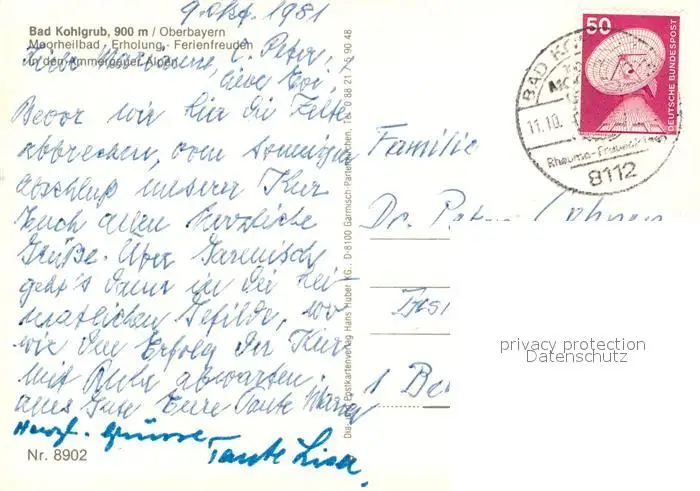 9. Okt. 1981
Bad Kohlgrub, 900 m / Oberbayern
Moorheilbad - Erholung - Ferienfreuden
in den Ammergauer Alpen
Liebe Marianne, l. Peter,
liebe Evi,
Bevor wir hier die Zelte
abbrechen, vom sonnigen
Abschluß unserer Kur
Euch allen herzliche
Grüße. Über Garmisch
geht's dann in die hei-
matlichen Gefilde, wo
wir den Erfolg der Kur
mit Ruhe abwarten.
Alles Gute Eure Tante
Herzl. Grüsse
Tante Lisa.
Nr. 8902
Postkartenverlag Hans Huber KG. D-8100 Garmisch-Partenkirchen Tel. 0 88 21
50
DEUTSCHE BUNDESPOST
BAD
11.10.
Rheuma-Frauen
8112
Familie
Dr. Peter
1 Be
privacy protection
Datenschutz